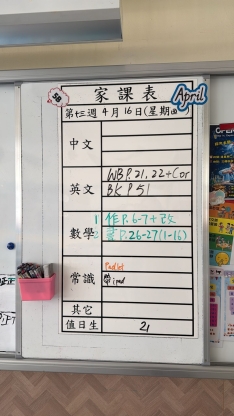 5B
家課表
April
第十三週 4月16日(星期四)
中文
英文
WB P.21, 22 + Cor
BK P.51
數學
1 作P.6-7+改
P.26-27(1-16)
常識
Padlet
帶ipad
其它
值日生
21